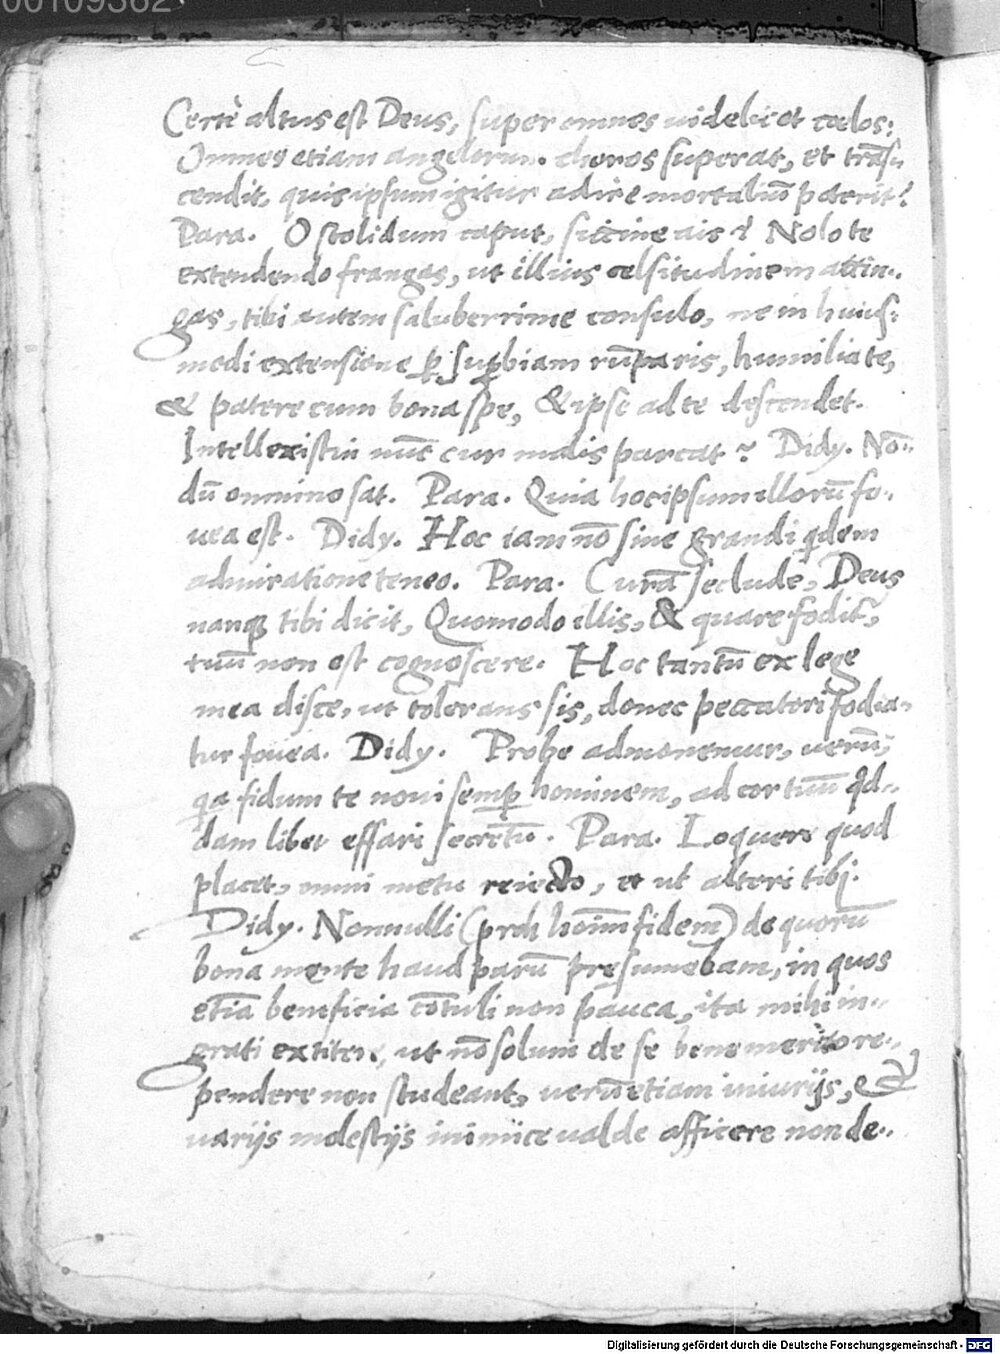 00109362
Certè altus est Deus, super omnes uidelicet cœlos:
Omnes etiam angelorum choros superat, et trāsc-
cendit, quis ipsum igitur adire mortaliū poterit?
Para. O stolidum caput, siccine ais? Nolo te
extendendo frangas, ut illius celsitudinem attin-
gas, tibi autem saluberrime consulo, ne in huius-
modi extensione ꝑ suꝑbiam rūparis, humilia te,
& patere cum bona spe, & ipse ad te descendet.
Intellexistin nūc cur malis parcat? Didy. Nō-
dū omnino sat. Para. Quia hoc ipsum illorū fo-
uea est. Didy. Hoc iam nō sine grandi qdem
admiratione teneo. Para. Curā seclude, Deus
nanqꝫ tibi dicit, Quomodo illis, & quare fodit~,
tuū non est cognoscere. Hoc tantū ex lege
mea disce, ut tolerans sis, donec peccatori fodia-
tur fouea. Didy. Probe admonemur, uerū,
qa fidum te noui semꝑ hominem, ad cor tuū qd-
dam libet effari secretū. Para. Loquere quod
placet, omni metu reiecto, et ut alteri tibi.
Didy. Nonnulli (proh hoīm fidem) de quorū
bona mente haud parū presumebam, in quos
etiā beneficia cōtuli non pauca, ita mihi in-
grati extitere, ut nō solum de se bene merito re-
pendere non studeant, uerū etiam iniurijs, &
uarijs molestijs inimice ualde afficere non de-
Digitalisierung gefördert durch die Deutsche Forschungsgemeinschaft - DFG